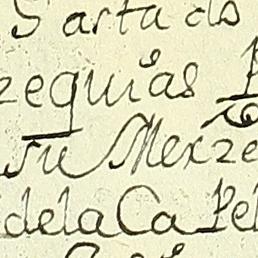 Sarta do
zequias
su Merze
dela Ca Pel